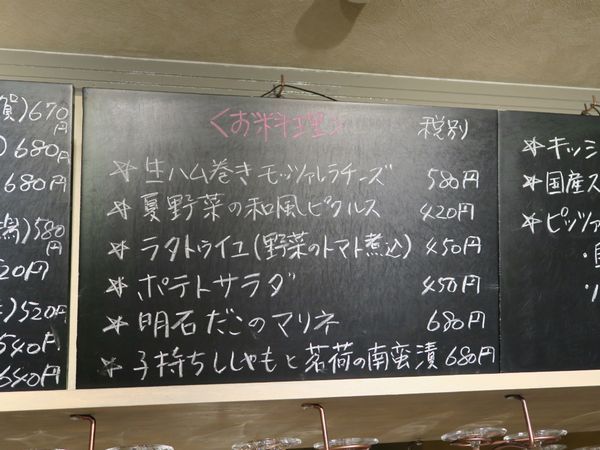 賀)670円
680円
680円
580円
520円
)520円
540円
640円
〈お料理〉 税別
☆生ハム巻きモッツァレラチーズ 580円
☆夏野菜の和風ピクルス 420円
☆ラタトゥイユ(野菜のトマト煮込) 450円
☆ポテトサラダ 450円
☆明石だこのマリネ 680円
☆子持ちししゃもと茗荷の南蛮漬 680円
☆キッシ
☆国産ス
☆ピッツァ